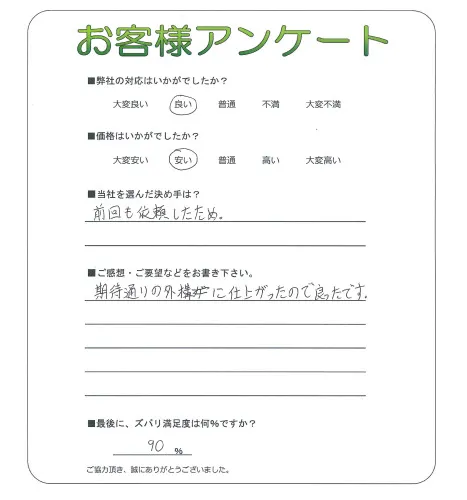 お客様アンケート
■弊社の対応はいかがでしたか？
大変良い 良い 普通 不満 大変不満
■価格はいかがでしたか？
大変安い 安い 普通 高い 大変高い
■当社を選んだ決め手は？
前回も依頼したため。
■ご感想・ご要望などをお書き下さい。
期待通りの外構に仕上がったので良ったです。
■最後に、ズバリ満足度は何％ですか？
90 ％
ご協力頂き、誠にありがとうございました。